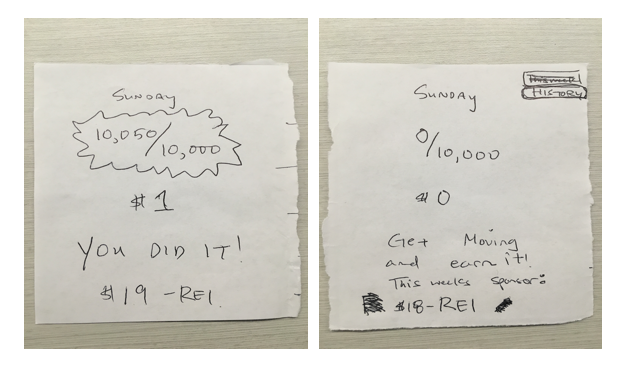 SUNDAY
10,050/10,000
$1
YOU DID IT!
$19 -REI
HISTORY
SUNDAY
0/10,000
$0
Get Moving
and earn it!
This weeks sponsor:
$18-REI